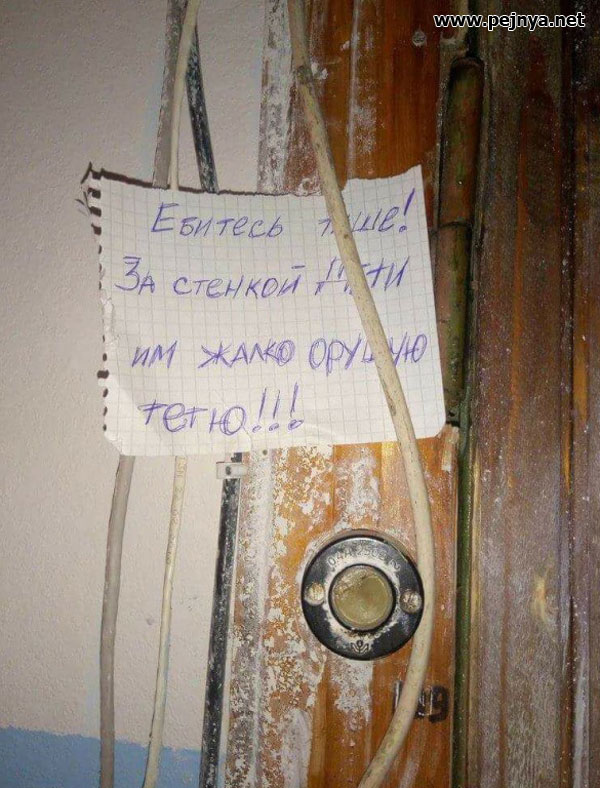 www.pejnya.net
Ебитесь тише!
За стенкой дети
им жалко орущую
тетю!!!